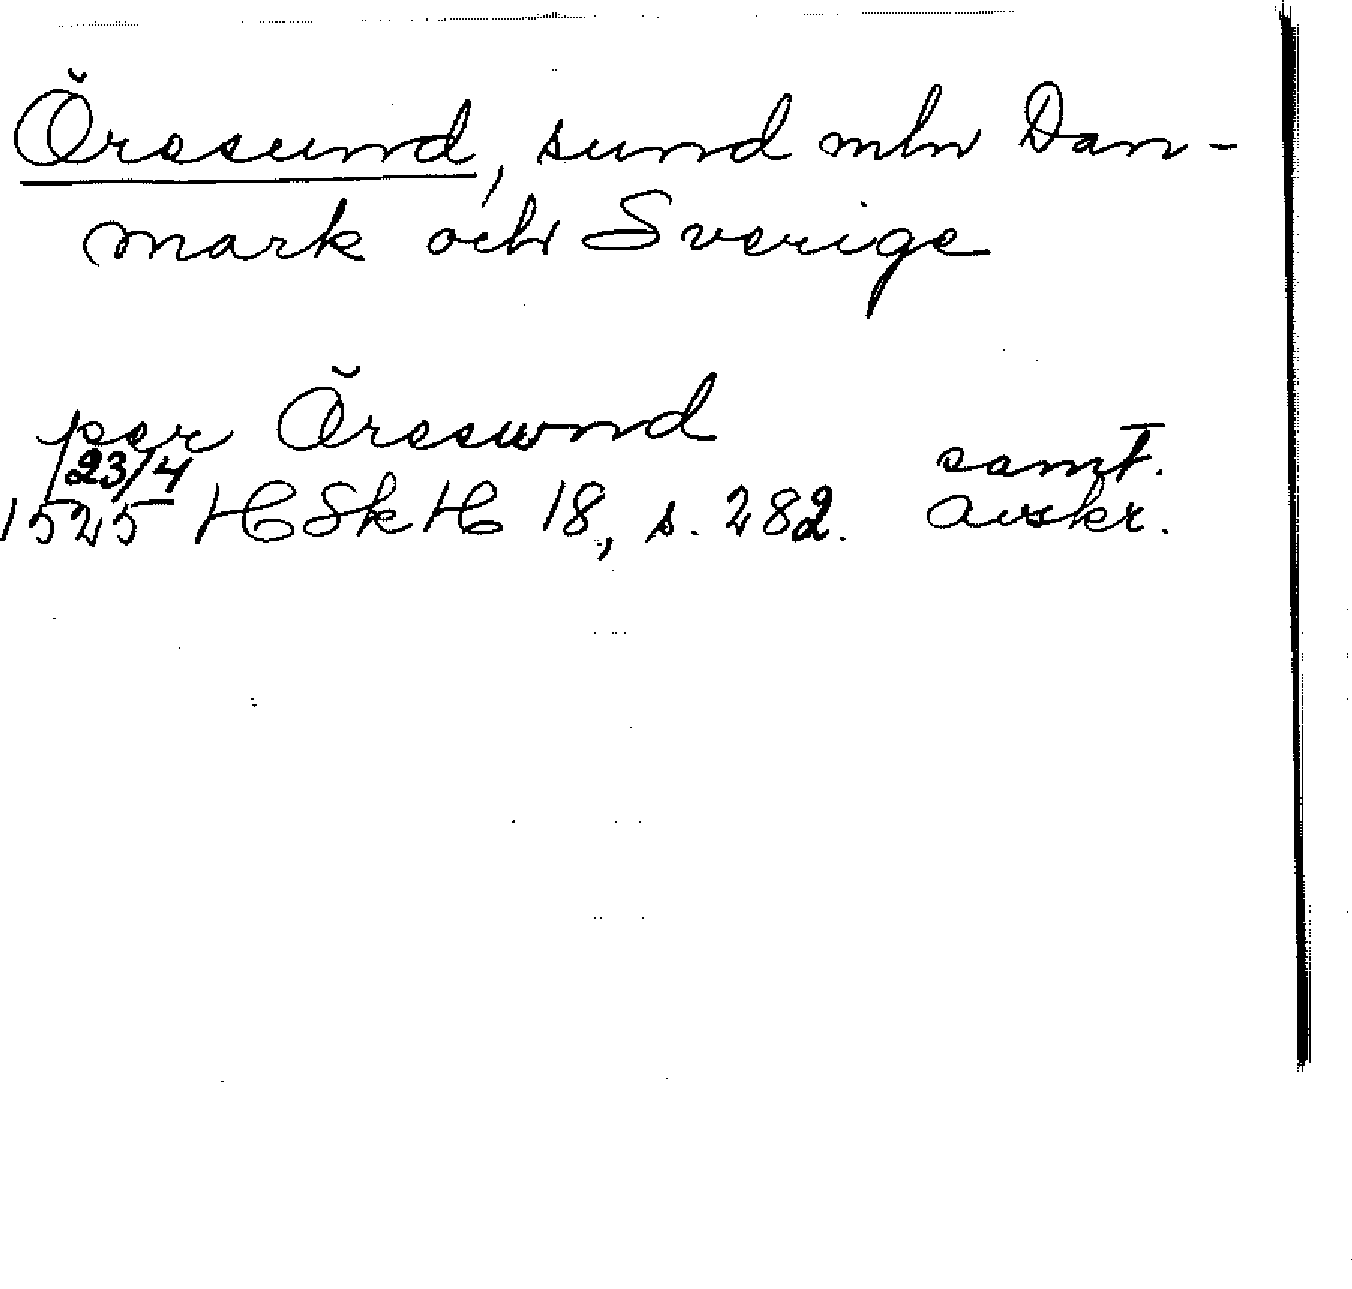 Öresund, sund mln Dan-
mark och Sverige
per Öreswnd
23/4 samt.
1525 HSkH 18, s. 282. avskr.